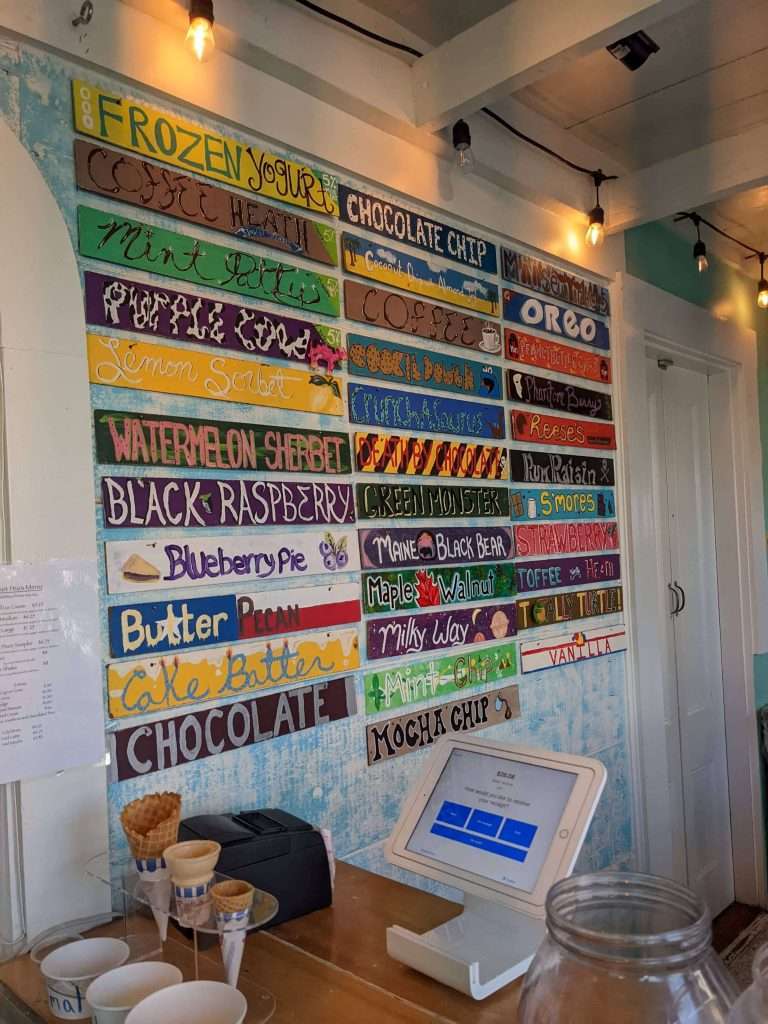 FROZEN YOGURT 5%
COFFEE HEATH
Mint Patty
PURPLE COW
Lemon Sorbet
WATERMELON SHERBET
BLACK RASPBERRY
BLUEBERRY PIE
Butter PECAN
Cake Batter
CHOCOLATE
CHOCOLATE CHIP
Coconut Almond
COFFEE
COOKIE DOUGH
CRUNCHASAURUS
DEATH BY CHOCOLATE
GREEN MONSTER
MAINE BLACK BEAR
Maple Walnut
Milky Way
Mint-Chip
MOCHA CHIP
OREO
PEANUT BUTTER
Phantom Berry
Reese's
Rum Raisin
S'mores
STRAWBERRY
TOFFEE
TURTLE
VANILLA
How would you like to receive
your receipt?